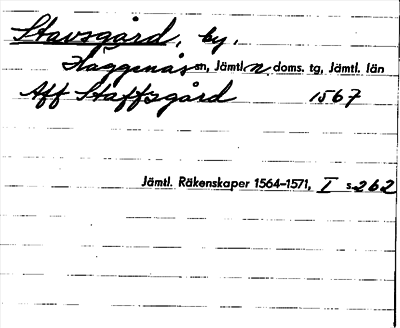 Stavsgård, by,
Häggenås sn, Jämtl. n. doms. tg, Jämtl. län
Aff Staffsgård 1567
Jämtl. Räkenskaper 1564–1571, I s. 262